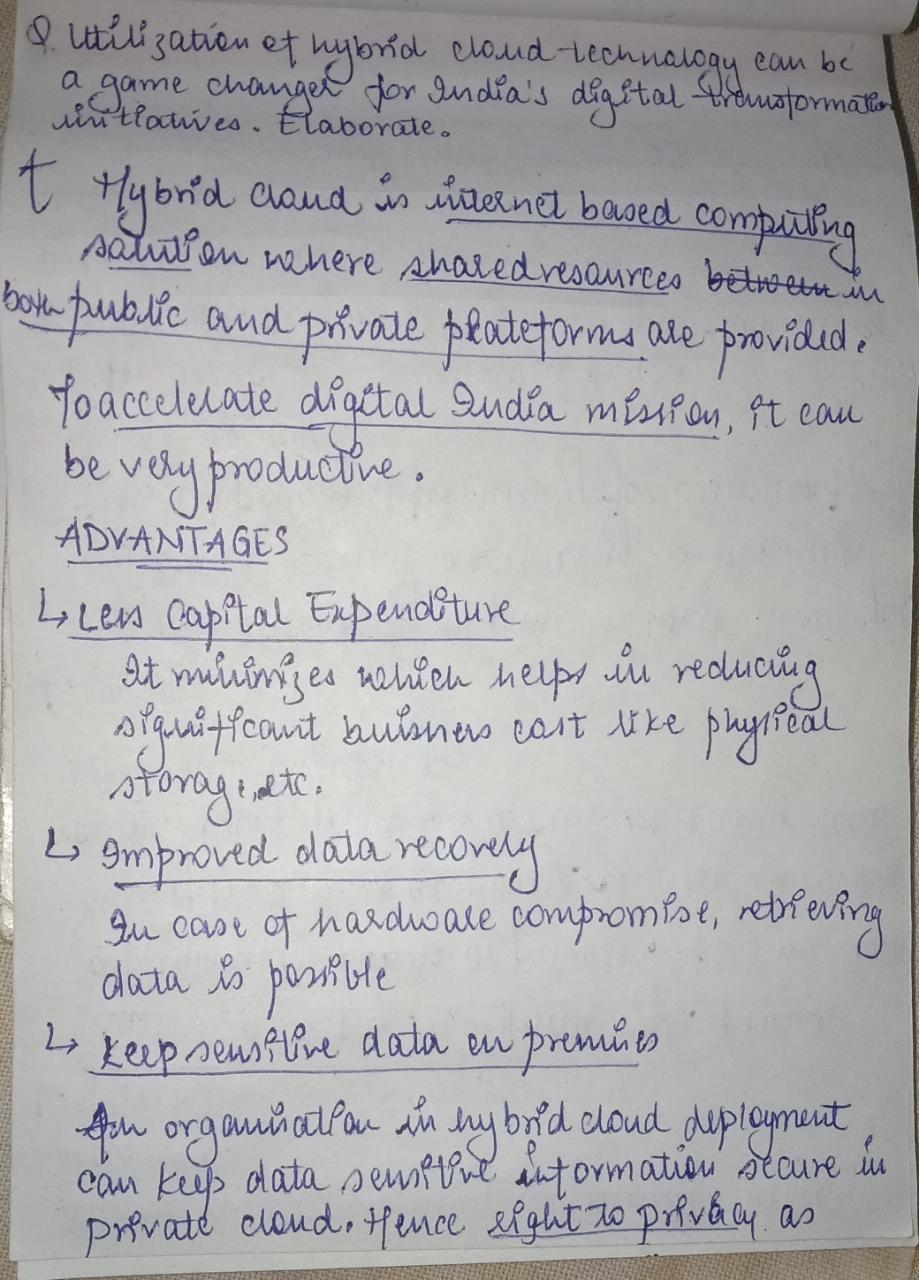 Q. Utilization of hybrid cloud technology can be
a game changer for India's digital transformation
initiatives. Elaborate.
Hybrid cloud is internet based computing
solution where shared resources between in
both public and private plateforms are provided.
To accelerate digital India mission, it can
be very productive.
ADVANTAGES
↳ Less Capital Expenditure
It minimizes which helps in reducing
significant buisness cost like physical
storage, etc.
↳ Improved data recovery
In case of hardware compromise, retrieving
data is possible
↳ Keep sensitive data on premises
An organisation in hybrid cloud deployment
can keep data sensitive information secure in
private cloud. Hence right to privacy as